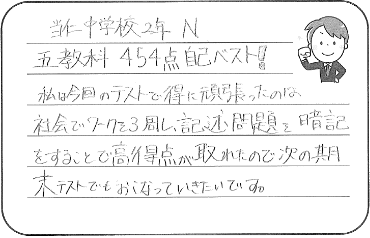 当仁中学校2年 N
五教科 454点自己ベスト!!
私は今回のテストで特に頑張ったのは、
社会でワークを3周し、記述問題を暗記
をすることで高得点が取れたので次の期
末テストでもおこなっていきたいです。